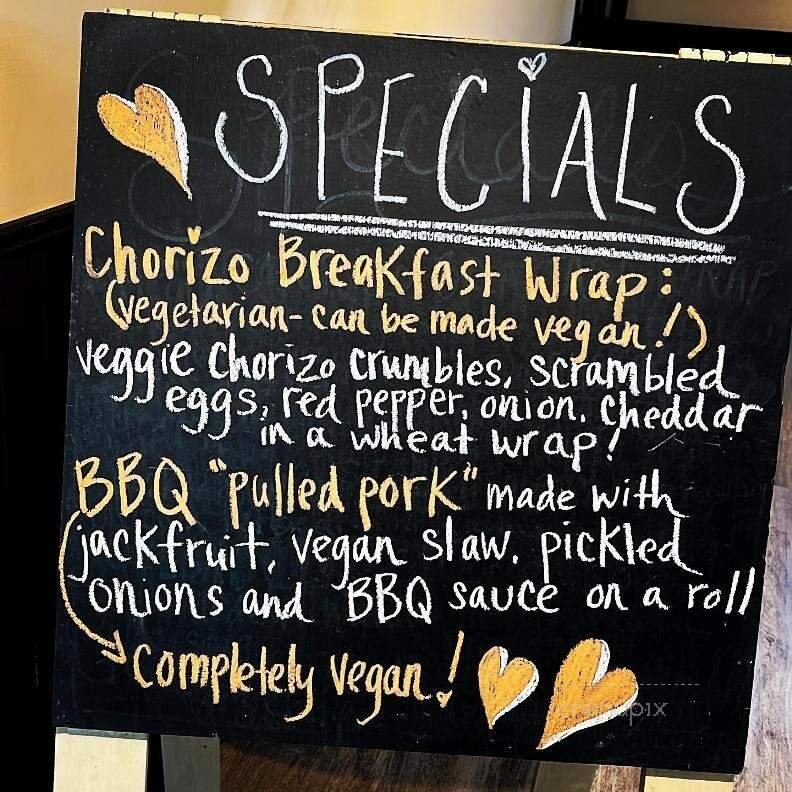 SPECIALS
Chorizo Breakfast Wrap:
(vegetarian - can be made vegan!)
veggie chorizo crumbles, scrambled
eggs, red pepper, onion, cheddar
in a wheat wrap!
BBQ "pulled pork" made with
jackfruit, vegan slaw, pickled
onions and BBQ sauce on a roll
Completely vegan!